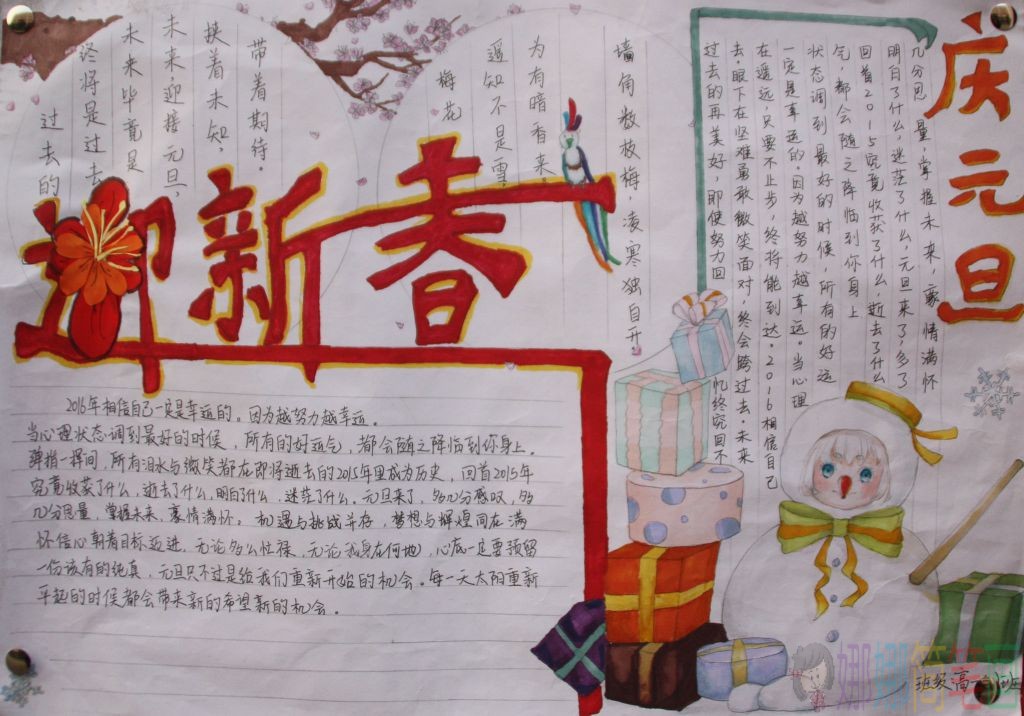 庆元旦
迎新春
几分思量,掌握未来,豪情满怀
明白了什么,迷茫了什么,元旦来了多了
回首2015究竟收获了什么逝去了什么
气,都会随之降临到你身上
状态调到最好的时候,所有的好运
一定是幸运的。因为越努力越幸运。当心理
在遥远,只要不止步,终将能到达。2016相信自己
去,眼下在坚难勇敢微笑面对,终会跨过去。未来
过去的再美好,即使努力回忆终究回不
墙角数枝梅,凌寒独自开。
为有暗香来
遥知不是雪,
梅花
带着期待。
挟着未知,
未来,迎接元旦,
未来毕竟是
终将是过去
过去的
2016年相信自己一定是幸运的。因为越努力越幸运。
当心理状态调到最好的时候,所有的好运气,都会随之降临到你身上。
弹指一挥间,所有泪水与微笑都在即将逝去的2015年里成为历史,回首2015年
究竟收获了什么,逝去了什么,明白了什么,迷茫了什么。元旦来了,多几分感叹,多
几分思量,掌握未来,豪情满怀。机遇与挑战并存,梦想与辉煌同在满
怀信心朝着目标迈进,无论多么忙碌,无论我身在何地,心底一定要预留
一份该有的纯真,元旦只不过是给我们重新开始的机会。每一天太阳重新
升起的时候都会带来新的希望新的机会。
班级高一